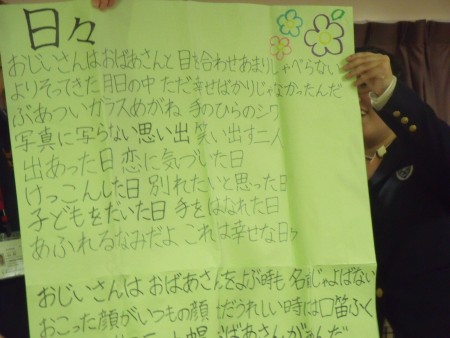 日々
おじいさんはおばあさんと目を合わせあまりしゃべらない
よりそってきた月日の中 ただ幸せばかりじゃなかったんだ
ぶあついガラスめがね 手のひらのシワ
写真に写らない思い出 笑い出す二人
出あった日 恋に気づいた日
けっこんした日 別れたいと思った日
子どもをだいた日 手をはなれた日
あふれるなみだよ これは幸せな日々
おじいさんは おばあさんをよぶ時も 名前じゃよばない
おこった顔がいつもの顔 ただうれしい時には口笛ふく
ばあさんが